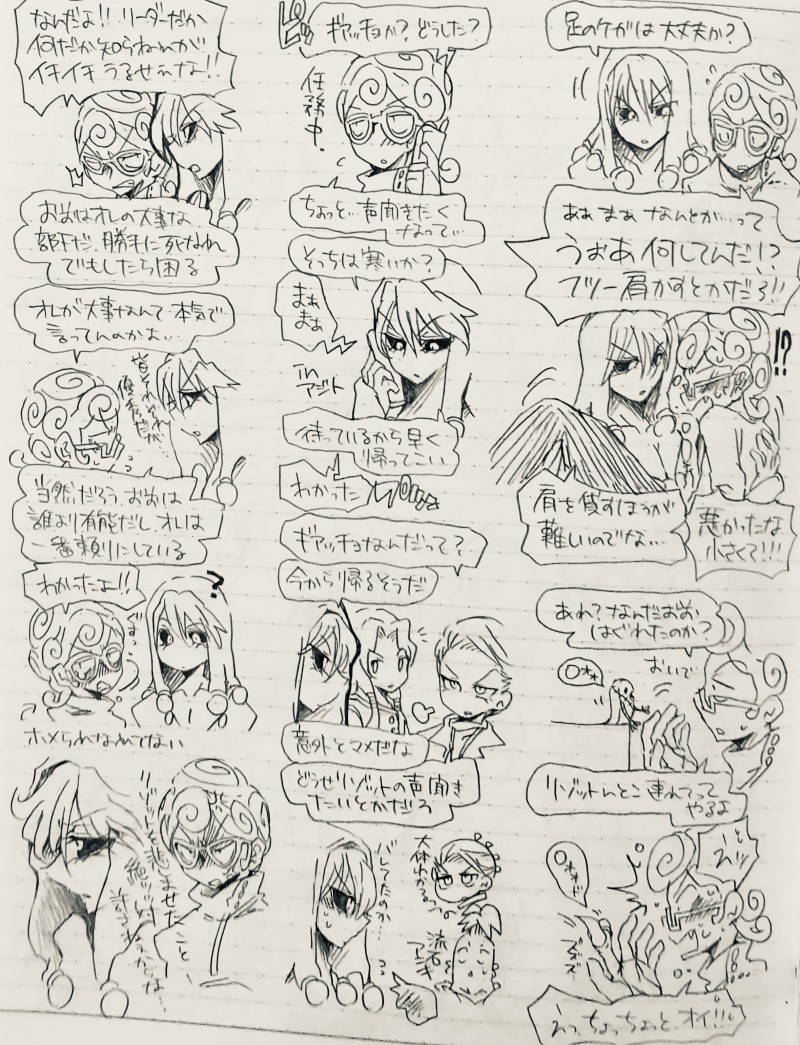 足のケガは大丈夫か?
ああまあなんとか…って
うおあ何してんだ!?
フツー肩かすとかだろ!!
!?
肩を貸すほうが
難しいのでな…
悪かったな
小さくて!!!
あれ?なんだお前
はぐれたのか?
おいで
リゾットんとこ連れてって
やるよ
えっ、ちょっちょっと、オイ!!!
ギアッチョか?どうした?
任務中。
ちょっと…声聞きたく
なって…
そっちは寒いか?
まぁ
まぁ
in
アジト
待っているから早く
帰ってこい
わかった
ギアッチョなんだって?
今から帰るそうだ
意外とマメだな
どうせリゾットの声聞き
たいとかだろ
バレてたのか…
大体わかる。
流石
なんだよ!!リーダーだか
何だか知らねーが
イチイチうるせーな!!
お前はオレの大事な
部下だ、勝手に死なれ
でもしたら困る
オレが大事なんて本気で
言ってんのかよ…
当然だろう、お前は
誰より有能だし、オレは
一番頼りにしている
わかったよ!!
?
ホメられなれてない